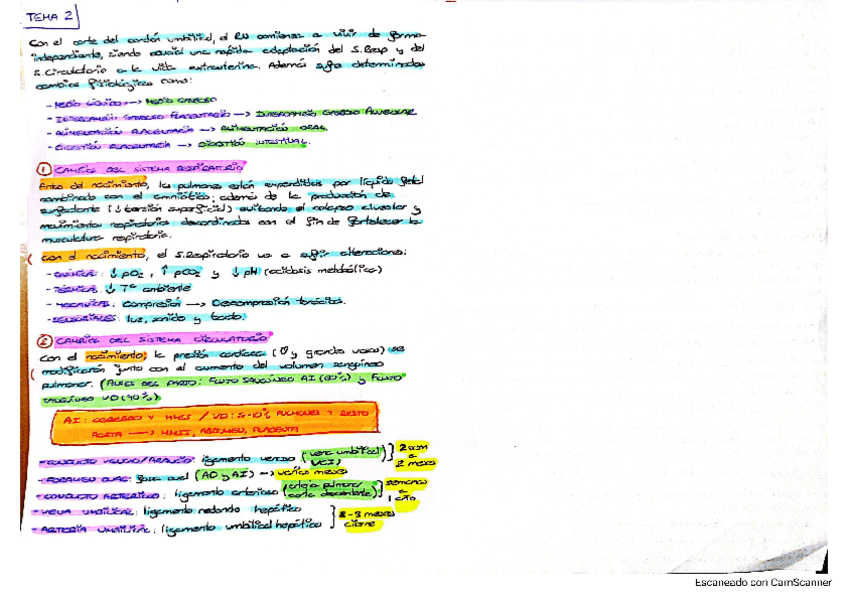 TEMA 2
Con el corte del cordón umbilical, el RN comienza a vivir de forma
independiente, siendo crucial una rapida adaptación del S.Resp y del
S.Circulatorio a la vida extrauterina. Además sufre determinados
cambios fisiológicos como:
- MEDIO LÍQUIDO → MEDIO GASEOSO
- INTERCAMBIO GASEOSO PLACENTARIO → INTERCAMBIO GASEOSO ALVEOLAR
- ALIMENTACIÓN PLACENTARIA → ALIMENTACIÓN ORAL.
- DIGESTIÓN PLACENTARIA → DIGESTIÓN INTESTINAL.
① CAMBIOS DEL SISTEMA RESPIRATORIO
Antes del nacimiento, los pulmones están expandidos por líquido fetal
combinado con el amniótico; además de la producción de
surfactante (↓ tensión superficial) evitando el colapso alveolar y
movimientos respiratorios descordinados con el fin de fortalecer la
musculatura respiratoria.
Con el nacimiento, el S.Respiratorio va a sufrir alteraciones:
- QUÍMICA: ↓ pO2, ↑ pCO2 y ↓ pH (acidosis metabólica)
- TÉRMICA: ↓ Tª ambiente
- MECÁNICAS: Compresión → Descompresión torácica.
- SENSORIALES: luz, sonido y tacto.
② CAMBIOS DEL SISTEMA CIRCULATORIO
Con el nacimiento; la presión cardíaca ( y grandes vasos) se
modificarán junto con el aumento del volumen sanguíneo
pulmonar. (ANTES DEL PARTO: FLUJO SANGUÍNEO AI (60%) y FLUJO
SANGUÍNEO VD (40%)
AI: CEREBRO Y MMSS / VD: 5-10% PULMONES Y RESTO
AORTA → MMII, ABDOMEN, PLACENTA
- CONDUCTO VENOSO/ARANCIO: ligamento venoso (vena umbilical VCI) } 2 sem a 2 meses
- FORAMEN OVAL: fosa oval (AD y AI) → varios meses
- CONDUCTO ARTERIOSO: ligamento arterioso (arteria pulmonar aorta descendente) } semanas a 1 año
- VENA UMBILICAL: ligamento redondo hepático } 2-3 meses
- ARTERIA UMBILICAL: ligamento umbilical hepático cierre
Escaneado con CamScanner